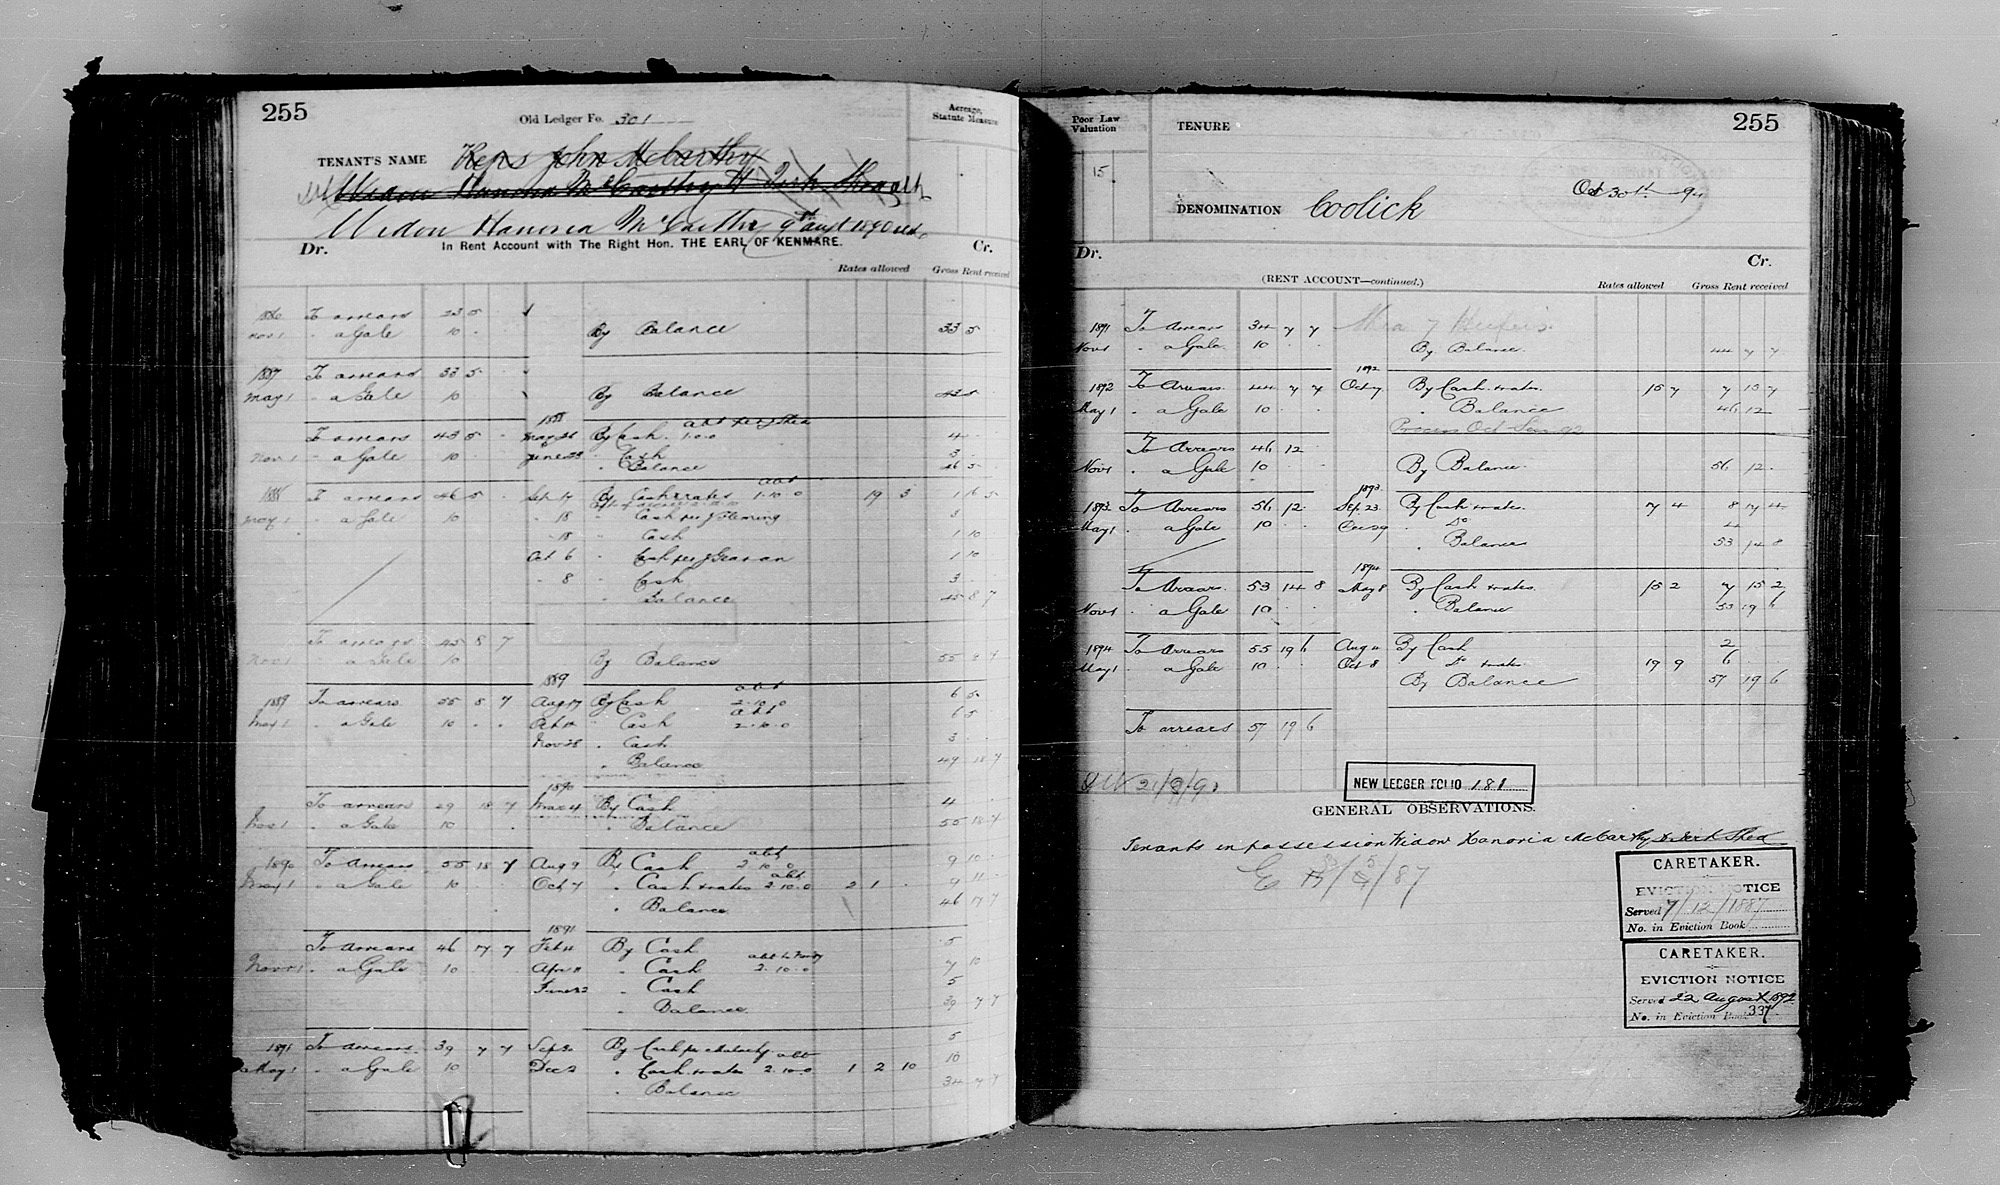 255
Old Ledger Fo. 301
Acreage, Statute Measure
TENANT'S NAME Reps John McCarthy
Widow Hanoria McCarthy & Derk Shea
Widow Hanoria McCarthy 9th Augt 1890
Dr. In Rent Account with The Right Hon. THE EARL OF KENMARE. Cr.
Rates allowed Gross Rent received
1886 To arrears 23 5
Nov 1 " a Gale 10 By Balance 33 5
1887 To arrears 33 5
May 1 " a Gale 10 By Balance 43 5
1888
To arrears 43 5 May 26 By Cash 1.0.0 4
Nov 1 " a Gale 10 June 23 " Cash 3
" Balance 46 5
1888 To arrears 46 5 Sep 17 By Cash & rates abt 1.10.0 19 3
May 1 " a Gale 10 " 18 " Cash per J Fleming 3
" 18 " Cash 1 10
Oct 6 " Cash per J 1 10
" 8 " Cash 3
" Balance 45 8 7
To arrears 45 8 7
Nov 1 " a Gale 10 By Balance 55 8 7
1889
1889 To arrears 55 8 7 Aug 17 By Cash abt 2.10.0 6 5
May 1 " a Gale 10 Oct 12 " Cash abt 2.10.0 6 5
Nov 28 " Cash 3
" Balance 49 18 7
1890
To arrears 49 18 7 Mar 4 By Cash 4
Nov 1 " a Gale 10 " Balance 55 18 7
1890 To Arrears 55 18 7 Aug 9 By Cash abt 2.10.0 9 10
May 1 " a Gale 10 Oct 7 " Cash & rates abt 2.10.0 2 1 9 11
" Balance 46 17 7
1891
To Arrears 46 17 7 Feb 4 By Cash 5
Nov 1 " a Gale 10 Apr 11 " Cash 2.10.0 7 10
June 22 " Cash 5
" Balance 39 7 7
1891 To Arrears 39 7 7 Sep 30 By Cash per 5
May 1 " a Gale 10 Dec 2 " Cash & rates abt 2.10.0 1 2 10 10
" Balance 34 7 7
Poor Law Valuation
TENURE
255
15
Oct 30th 94
DENOMINATION Coolick
Dr. Cr.
(RENT ACCOUNT—continued.) Rates allowed Gross Rent received
1891 To Arrears 34 7 7
Nov 1 " a Gale 10 By Balance 44 7 7
1892
1892 To Arrears 44 7 7 Oct 7 By Cash & rates 15 7 7 15 7
May 1 " a Gale 10 " Balance 46 12
Process Oct Sess 92
To Arrears 46 12
Nov 1 " a Gale 10 By Balance 56 12
1893
1893 To Arrears 56 12 Sep 23 By Cash & rates 7 4 8 17 4
May 1 " a Gale 10 Dec 29 " Do 4
" Balance 53 14 8
1894
To Arrears 53 14 8 May 8 By Cash & rates 15 2 7 15 2
Nov 1 " a Gale 10 " Balance 55 19 6
1894 To Arrears 55 19 6 Aug 11 By Cash 2
May 1 " a Gale 10 Oct 8 " Do & rates 19 9 6
By Balance 57 19 6
To arrears 57 19 6
NEW LEDGER FOLIO 181
GENERAL OBSERVATIONS.
Tenants in possession Widow Hanoria McCarthy & Derk Shea
CARETAKER.
EVICTION NOTICE
Served 7/12/1887
No. in Eviction Book
CARETAKER.
EVICTION NOTICE
Served 22 August 1892
No. in Eviction Book 337